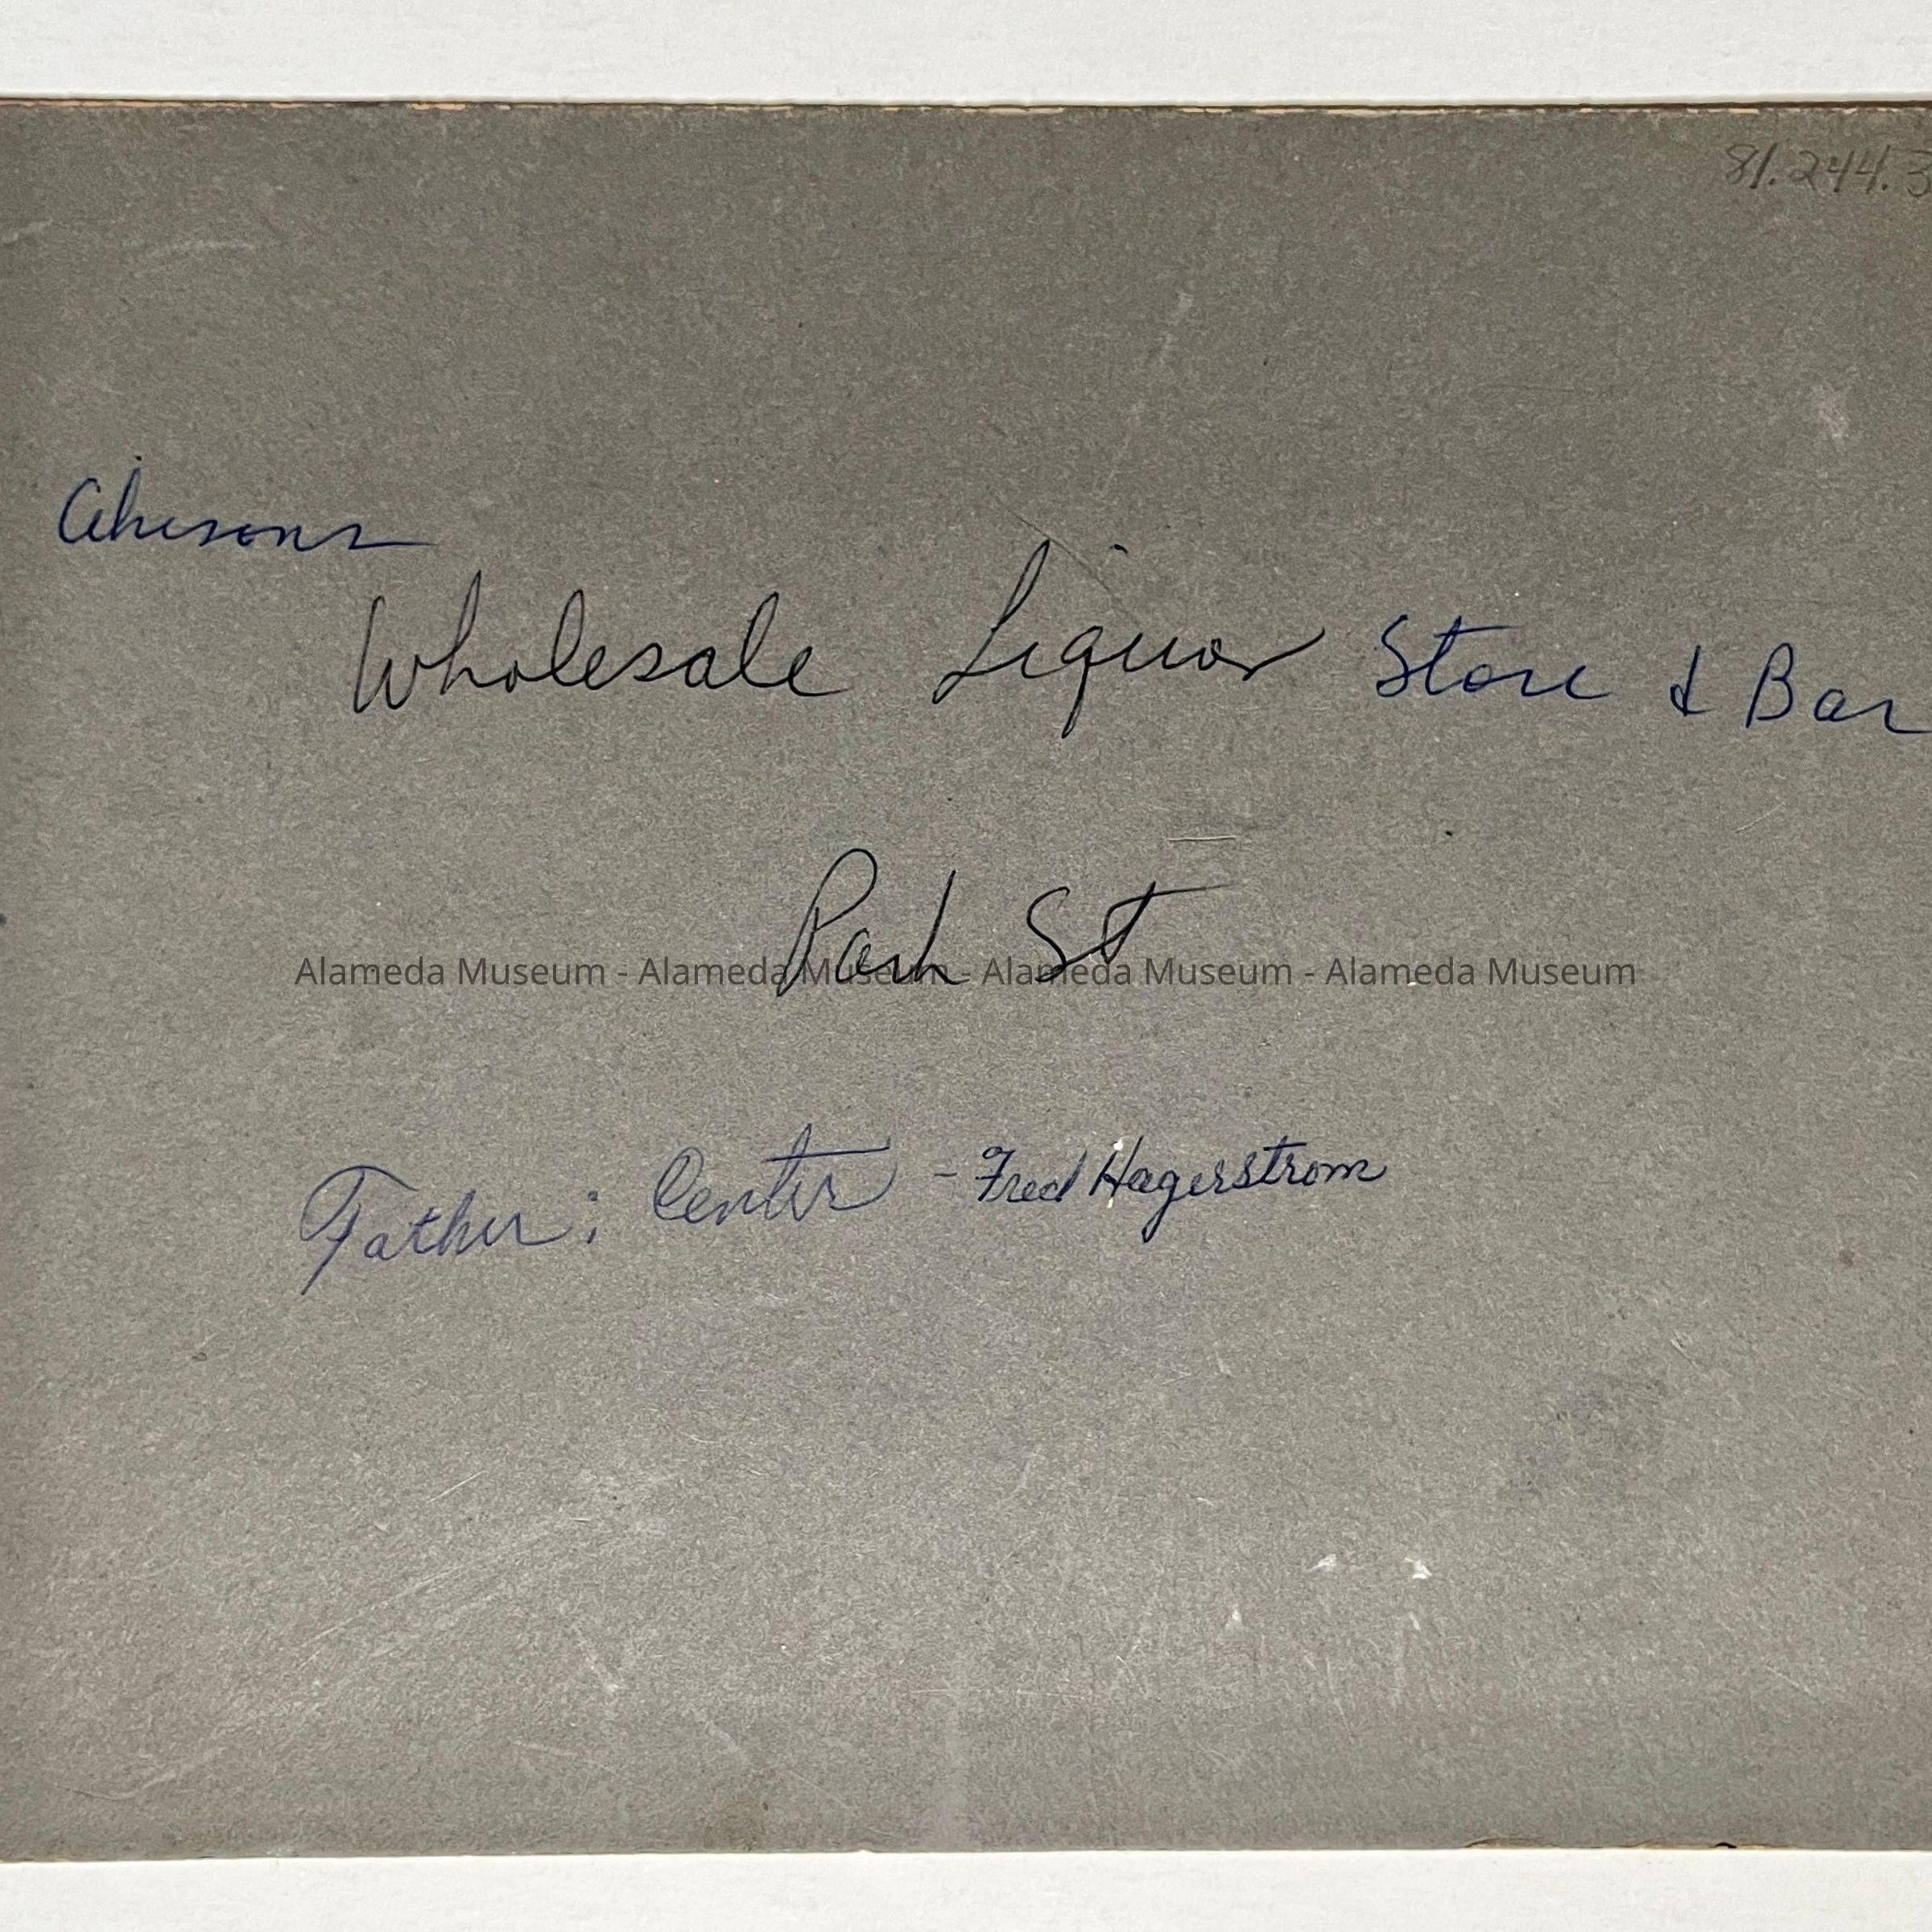 81.244.3
Wholesale Liquor Store & Bar
Park St
Alameda Museum - Alameda Museum - Alameda Museum - Alameda Museum
Father: Center - Fred Hagerstrom